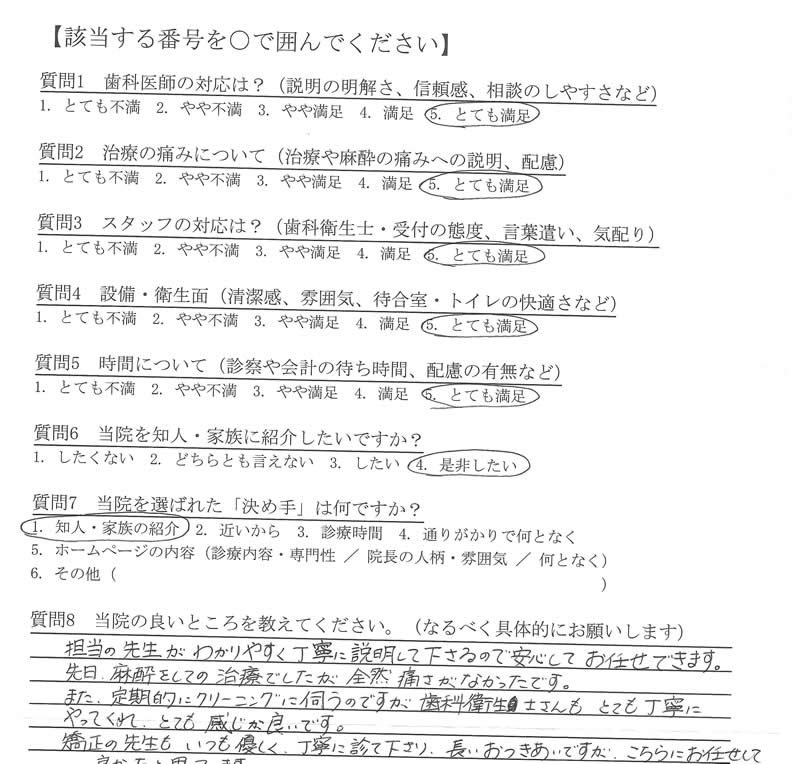 【該当する番号を○で囲んでください】
質問1 歯科医師の対応は？（説明の明解さ、信頼感、相談のしやすさなど）
1. とても不満 2. やや不満 3. やや満足 4. 満足 5. とても満足
質問2 治療の痛みについて（治療や麻酔の痛みへの説明、配慮）
1. とても不満 2. やや不満 3. やや満足 4. 満足 5. とても満足
質問3 スタッフの対応は？（歯科衛生士・受付の態度、言葉遣い、気配り）
1. とても不満 2. やや不満 3. やや満足 4. 満足 5. とても満足
質問4 設備・衛生面（清潔感、雰囲気、待合室・トイレの快適さなど）
1. とても不満 2. やや不満 3. やや満足 4. 満足 5. とても満足
質問5 時間について（診察や会計の待ち時間、配慮の有無など）
1. とても不満 2. やや不満 3. やや満足 4. 満足 5. とても満足
質問6 当院を知人・家族に紹介したいですか？
1. したくない 2. どちらとも言えない 3. したい 4. 是非したい
質問7 当院を選ばれた「決め手」は何ですか？
1. 知人・家族の紹介 2. 近いから 3. 診療時間 4. 通りがかりで何となく
5. ホームページの内容（診療内容・専門性 ／ 院長の人柄・雰囲気 ／ 何となく）
6. その他（ ）
質問8 当院の良いところを教えてください。（なるべく具体的にお願いします）
担当の先生がわかりやすく丁寧に説明して下さるので安心してお任せできます。
先日、麻酔をしての治療でしたが全然痛さがなかったです。
また、定期的にクリーニングに伺うのですが歯科衛生士さんもとても丁寧に
やってくれ、とても感じが良いです。
矯正の先生もいつも優しく、丁寧に診て下さり、長いおつきあいですが、こちらにお任せして
良かったと思ってます